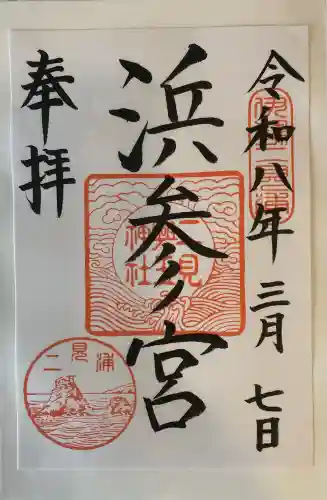 令和八年三月七日
浜参宮
奉拝
二見興玉神社
二見浦